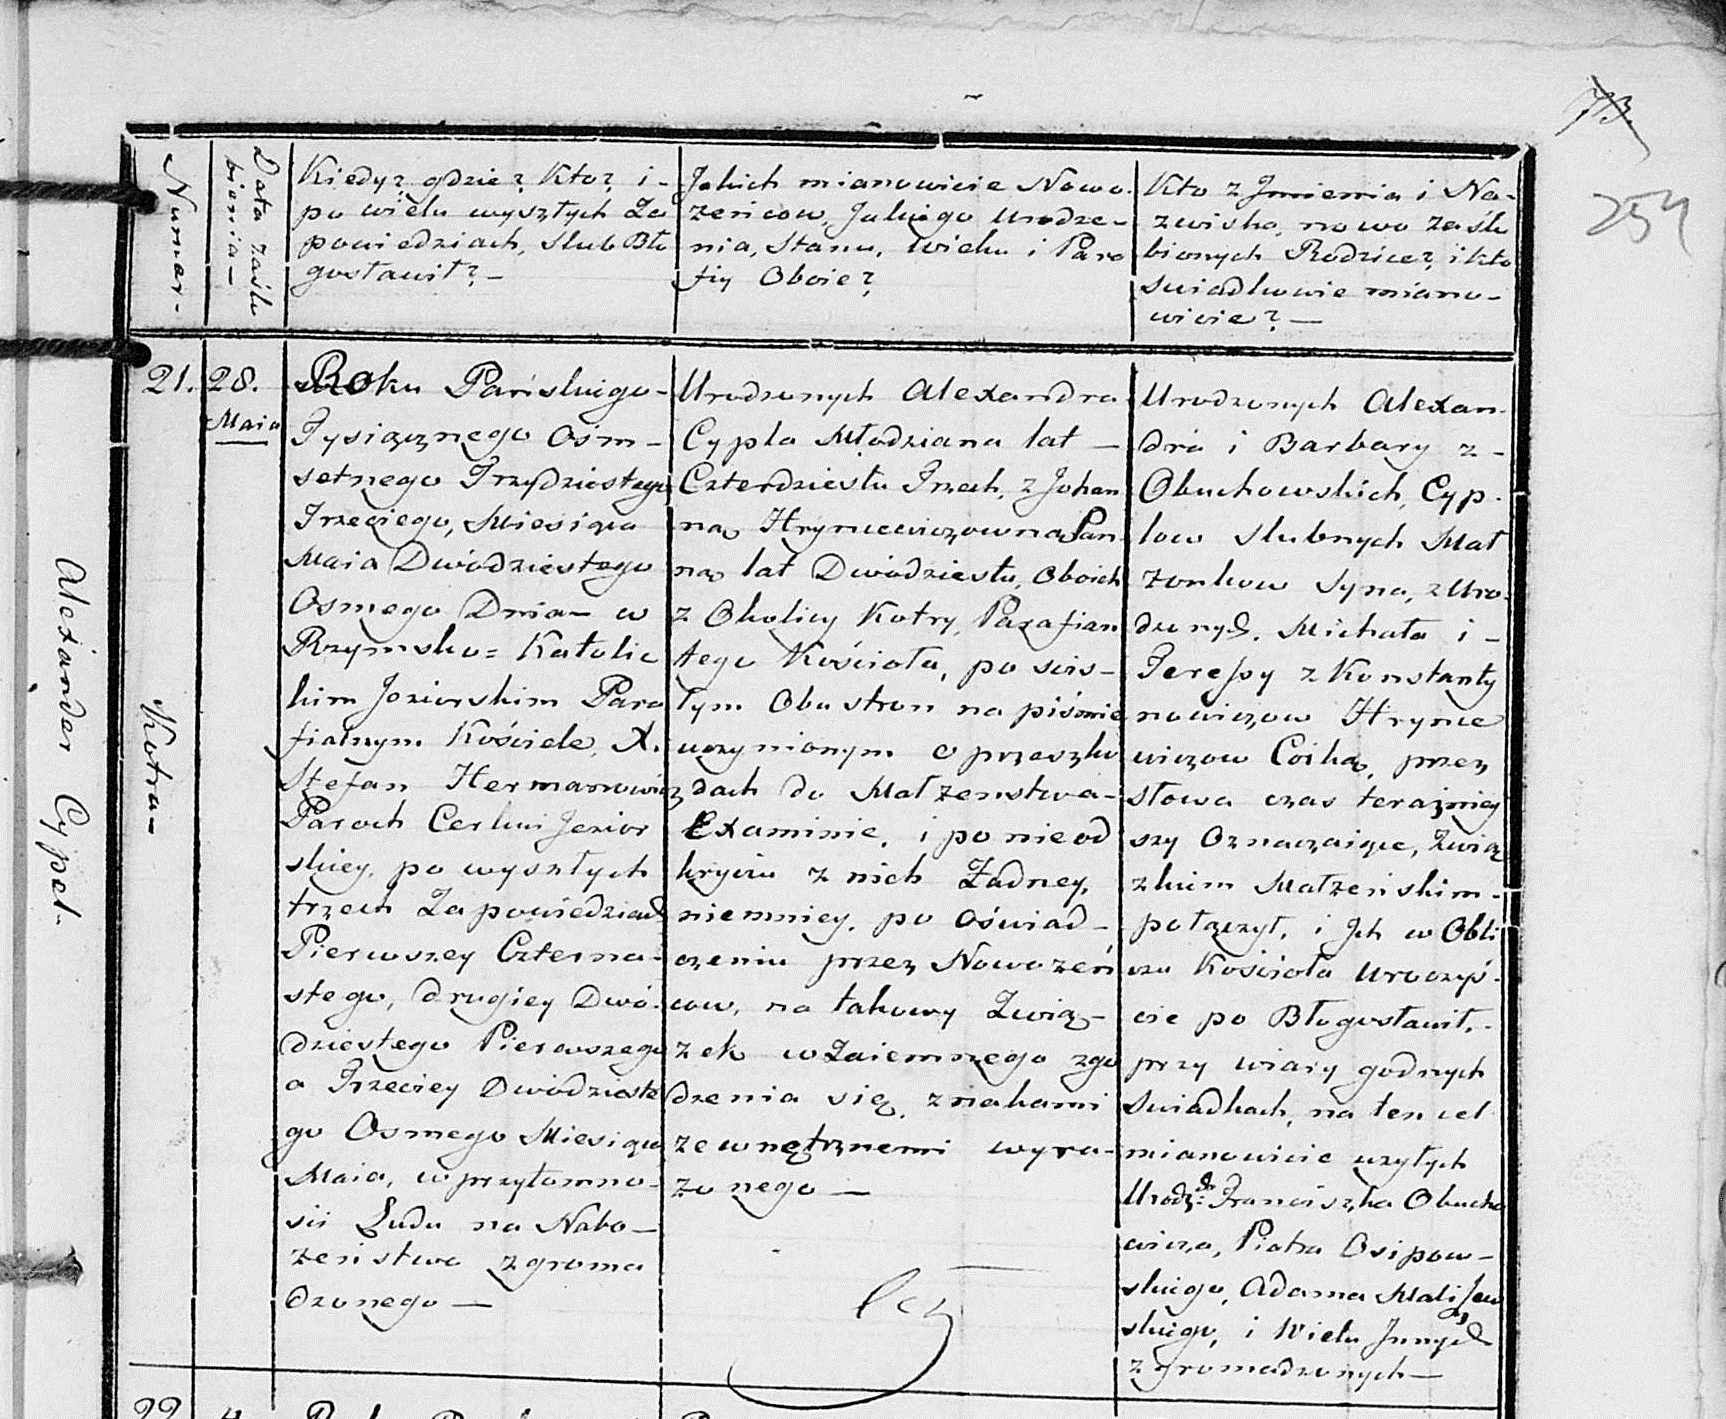 73.
254
Numer.-
Data zaślu
bienia-
Kiedy? gdzie? Kto? i-
po wielu wyszłych Za
powiedziach, slub Bło
gosławił?-
Jakich mianowicie Nowo.
żeńcow, Jakiego urodze-
nia, Stanu, wieku i Para
fiy Oboie?
Kto z Jmienia i Na-
zwiska, nowo zaślu
bionych Rodzice? i kto
swiadkowie miano-
wicie?-
Alexander Cypel-
21.
Kotra-
28.
Maia
Roku Pańskiego-
Tysiącznego Ośm-
setnego Trzydziestego
Trzeciego, Miesiąca
Maia Dwódziestego
Osmego Dnia- w
Rzymsko= Katolic
kim Jeziorskim Para
fialnym Kościele, X.
Stefan Hermanowicz
Paroch Cerkwi Jezior
skiey, po wyszłych
trzech Zapowiedziach
Pierwszey Czterna-
stego, drugiey Dwó-
dziestego Pierwszego
a Trzeciey Dwódzieste
go Osmego Miesiąca
Maia, w przytomno-
ści Ludu na Nabo-
żeństwo zgroma
dzonego-
Urodzonych Alexandra
Cypla Młodziana lat-
Czterdziestu Trzech, z Johan
ną Hryncewiczowna Pan-
ną lat Dwódziestu, Oboich
z Okolicy Kotry, Parafian
tego Kościoła, po scis-
łym Obustron na piśmie
uczynionym o przeszko
dach do Małżenstwa-
Examinie, i po nieod
kryciu z nich Żadney,
niemniey, po Oświad-
czeniu przez Nowożeń
cow, na takowy Związ-
zek wzaiemnego zgo
dzenia się, znakami
zewnętrznemi wyra-
żonego-
Urodzonych Alexan-
dra i Barbary z-
Obuchowskich, Cyp-
low slubnych Mał
żonkow Syna, z Uro-
dzonych, Michała i-
Teressy z Konstanty
nowiczow Hrynce
wiczow Corką, przez
słowa czas teraźniey
szy Oznaczaiące, Związ
zkiem Małżeńskim-
połączył, i Jch w Obli
czu Kościoła Uroczyś-
cie po Błogosławił,-
przy wiary godnych
Swiadkach, na ten cel
mianowicie użytych
Urodz:ch Franciszka Obucho
wicza, Piotra Osipow-
skiego, Adama Malisew
skiego, i Wielu Jnnych
zgromadzonych-
22
4